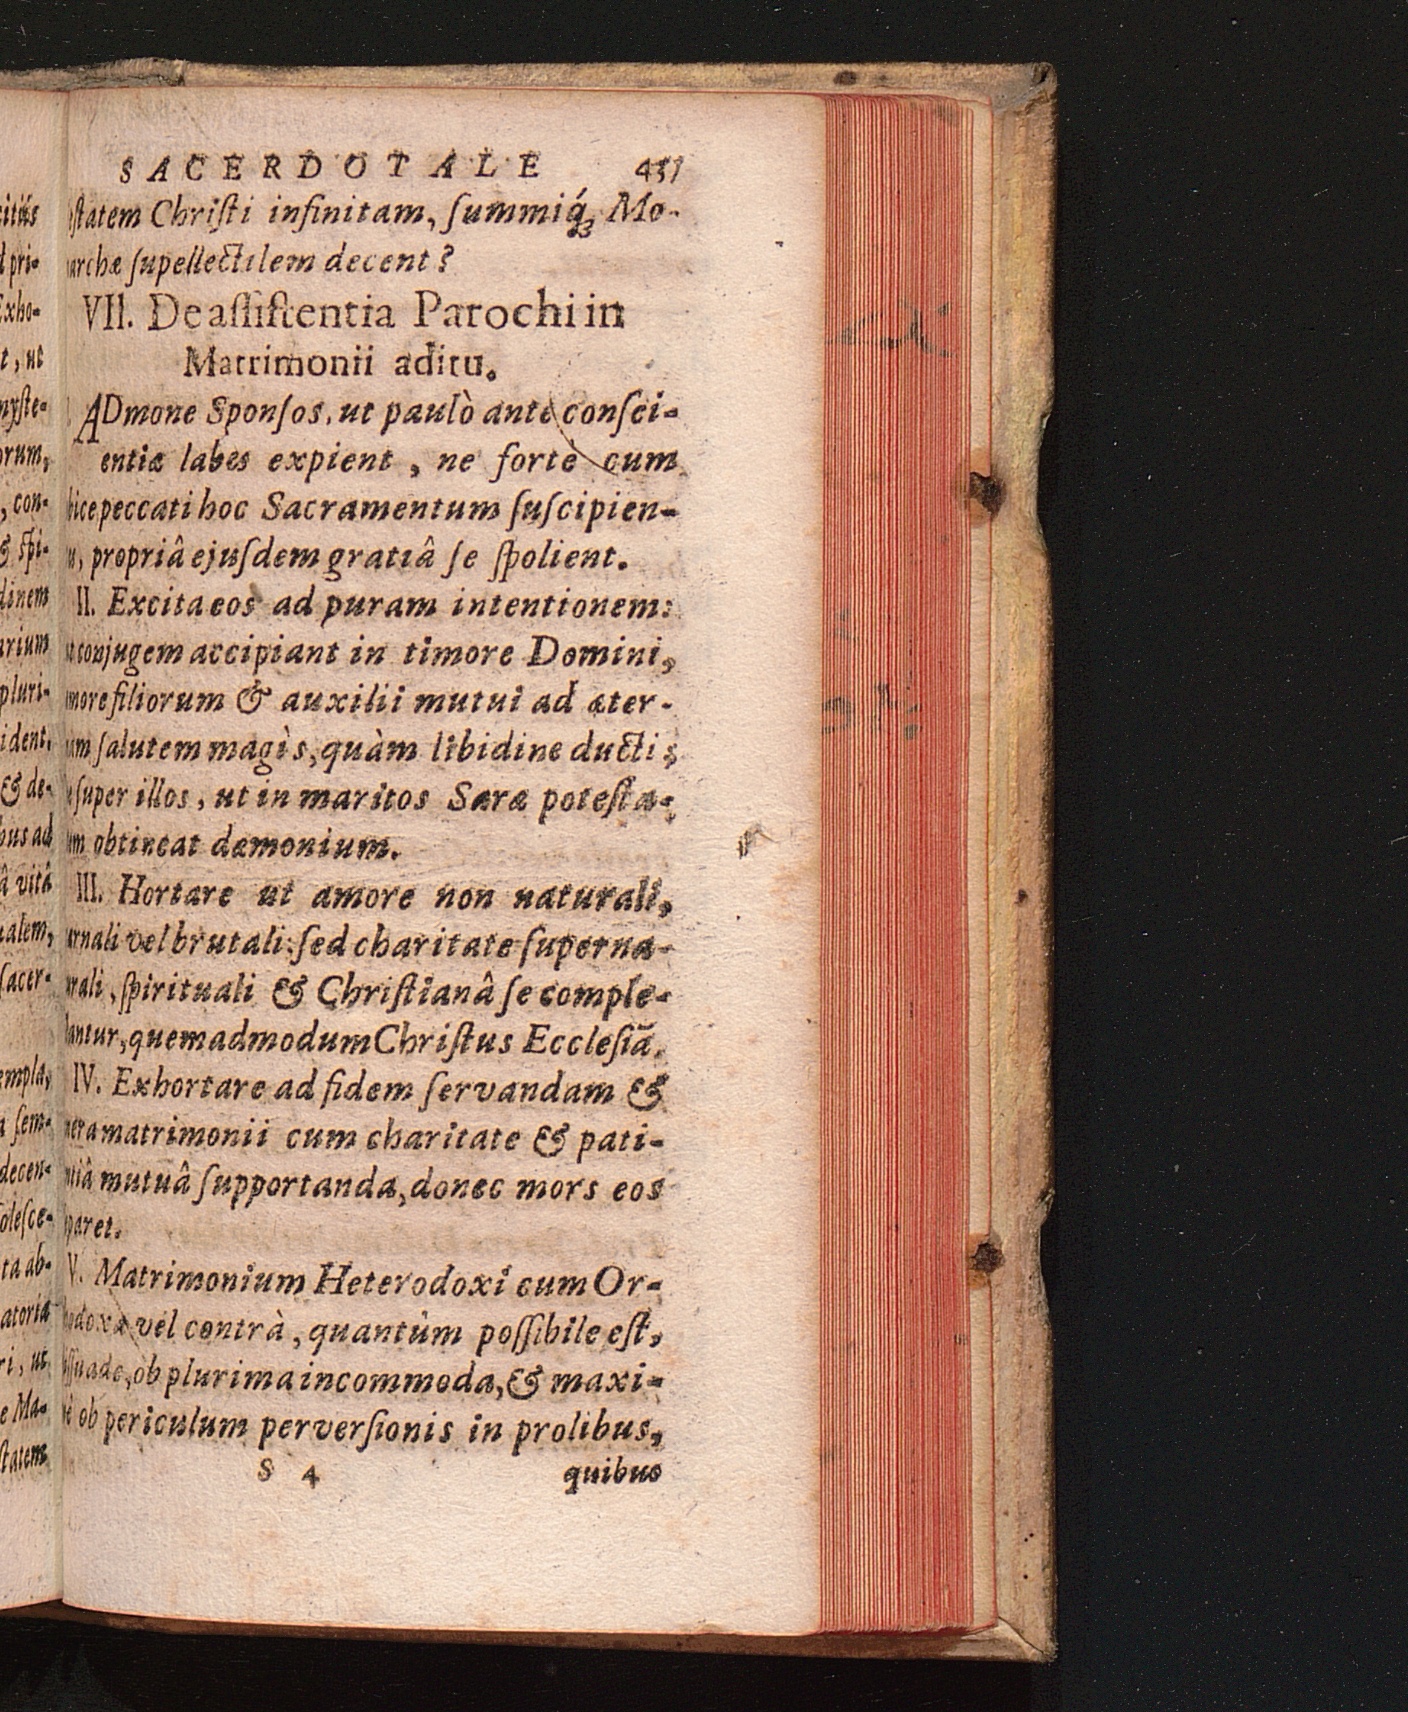 SACERDOTALE
ſtatem Chriſti infinitam, ſummiq́; Mo-
archæ ſupellectilem decent?
VII. De aſſiſtentia Parochi in
Matrimonii aditu.
ADmone Sponſos, ut paulò ante conſci-
entiæ labes expient, ne fortè cum
bice peccati hoc Sacramentum ſuſcipien-
propriâ ejuſdem gratiâ ſe ſpolient.
II. Excita eos ad puram intentionem:
ut conjugem accipiant in timore Domini,
more filiorum & auxilii mutui ad æter-
am ſalutem magìs, quàm libidine ducti;
e ſuper illos, ut in maritos Saræ poteſta-
em obtineat dæmonium.
III. Hortare ut amore non naturali,
arnali vel brutali: ſed charitate ſuperna-
urali, ſpirituali & Chriſtianâ ſe comple-
ctantur, quemadmodum Chriſtus Eccleſiã.
IV. Exhortare ad fidem ſervandam &
nera matrimonii cum charitate & pati-
ntiâ mutuâ ſupportanda, donec mors eos
paret.
V. Matrimonium Heterodoxi cum Or-
odoxa vel contrà, quantùm poſſibile eſt,
iſſuade, ob plurima incommoda, & maxi-
è ob periculum perverſionis in prolibus,
S 4 quibus
citiús
d pri-
Exho-
t, ut
myſte-
orum,
, con-
& ſpi-
dinem
arium
pluri-
ident.
& de-
bus ad
â vitâ
ualem,
ſacer-
empla,
ſem-
decen-
oleſce-
ta ab-
atoria
ri, ut
e Ma-
ſtatem